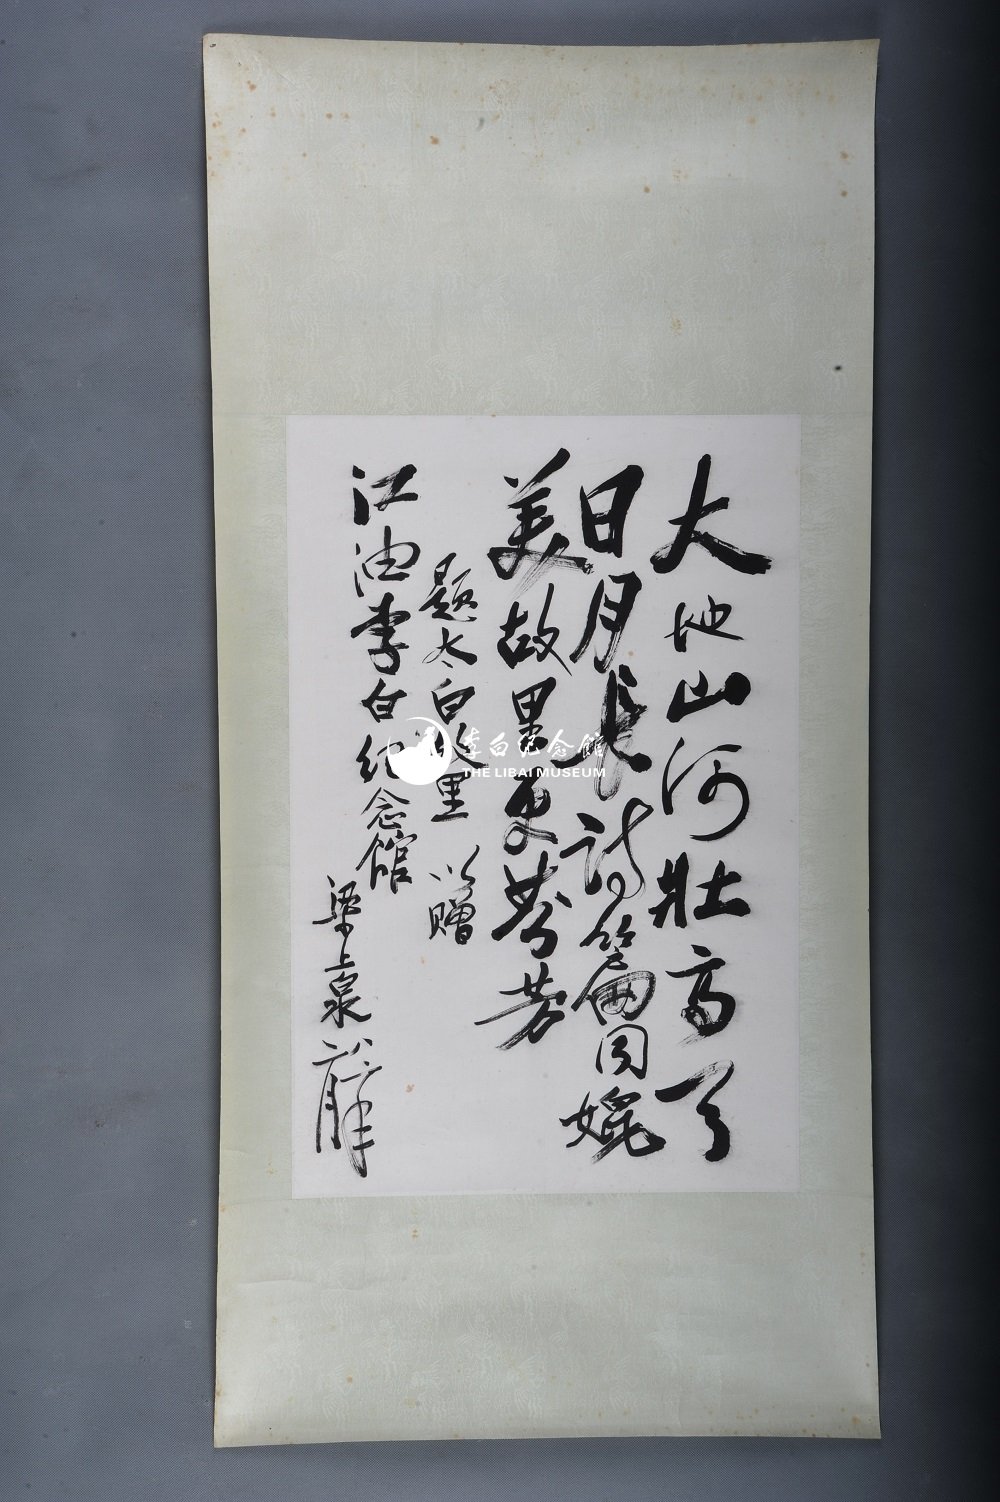 大地山河壮高天
日月長诗篇同媲
美故里更芬芳
题太白故里 以赠
江油李白纪念馆
梁上泉
李白纪念馆
THE LIBAI MUSEUM